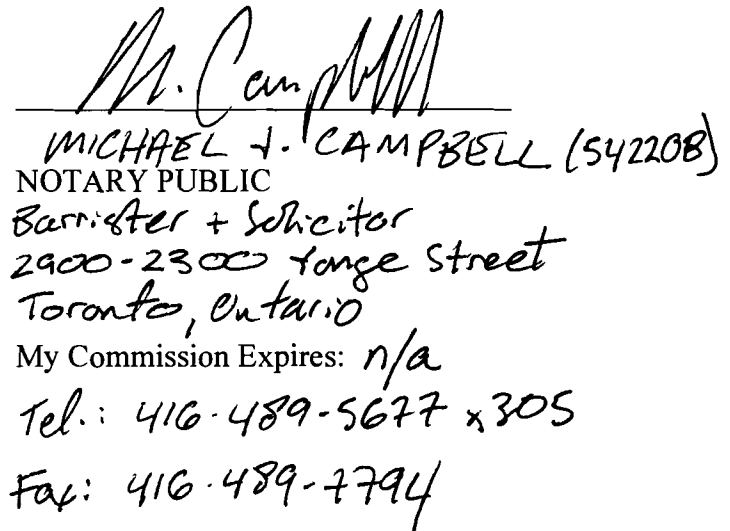 M. Campbell
MICHAEL J. CAMPBELL (54220B)
NOTARY PUBLIC
Barrister + Solicitor
2900-2300 Yonge Street
Toronto, Ontario
My Commission Expires: n/a
Tel.: 416-489-5677 x305
Fax: 416-489-7794